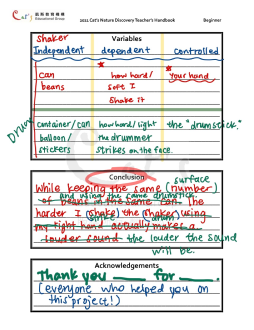 Cat's
凱斯教育機構
Educational Group
2021 Cat's Nature Discovery Teacher's Handbook
Beginner
Shaker
Variables
Independent dependent controlled
can how hard/ your hand
beans soft I
shake it
Drum
container/can how hard/light the "drumstick."
balloon/ the drummer
stickers strikes on the face.
Conclusion
surface
While keeping the same (number)
and using the same drumstick,
of beans in the same can the
harder I (shake) the (shaker) using
strike drum
my right hand actually makes a
louder sound the louder the sound
will be.
Acknowledgements
Thank you ____ for ____.
(everyone who helped you on
this project!)